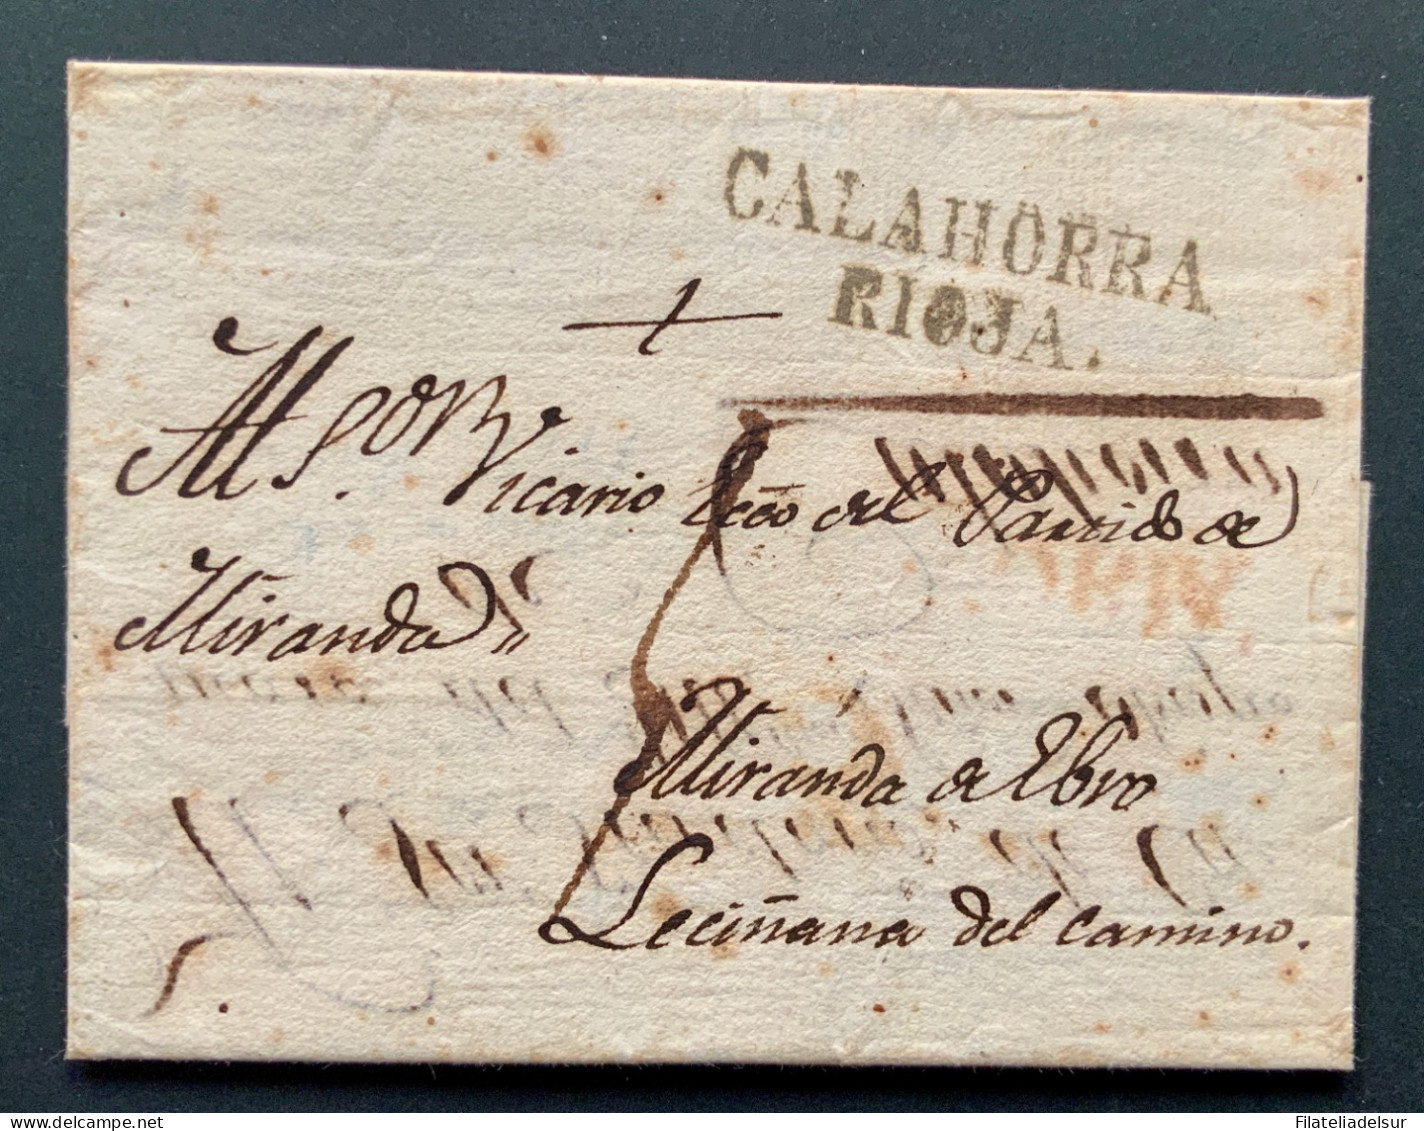 CALAHORRA
RIOJA.
Al Sor
Vicario del Partido de
Miranda
Miranda de Ebro
Leciñana del Camino.
Filateliadelsur